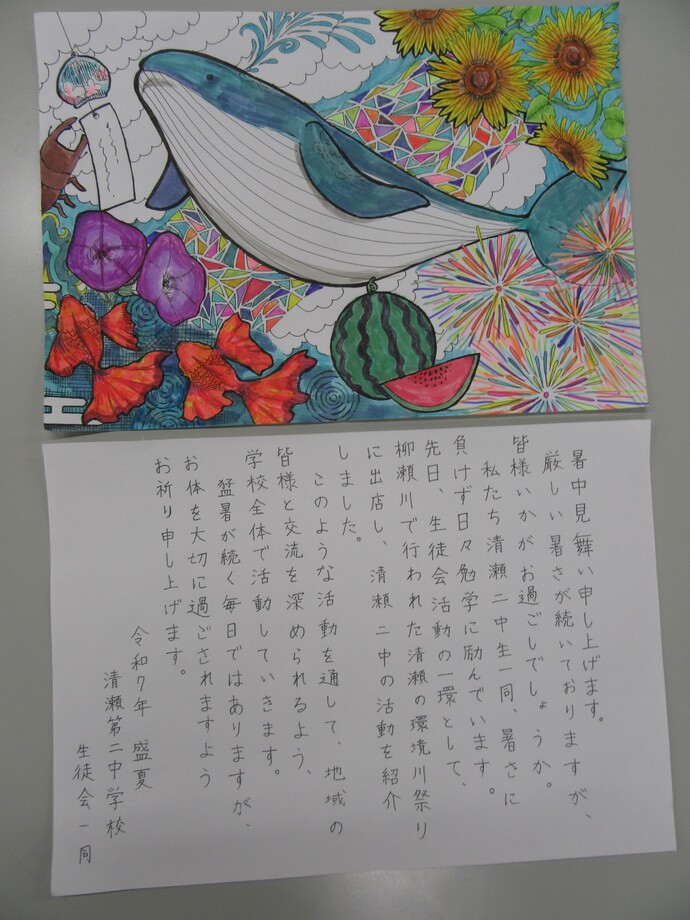 暑中見舞い申し上げます。
厳しい暑さが続いておりますが、
皆様いかがお過ごしでしょうか。
私たち清瀬二中生一同、暑さに
負けず日々勉学に励んでいます。
先日、生徒会活動の一環として、
柳瀬川で行われた清瀬の環境川祭り
に出店し、清瀬二中の活動を紹介
しました。
このような活動を通して、地域の
皆様と交流を深められるよう、
学校全体で活動していきます。
猛暑が続く毎日ではありますが、
お体を大切に過ごされますよう
お祈り申し上げます。
令和7年 盛夏
清瀬第二中学校
生徒会一同